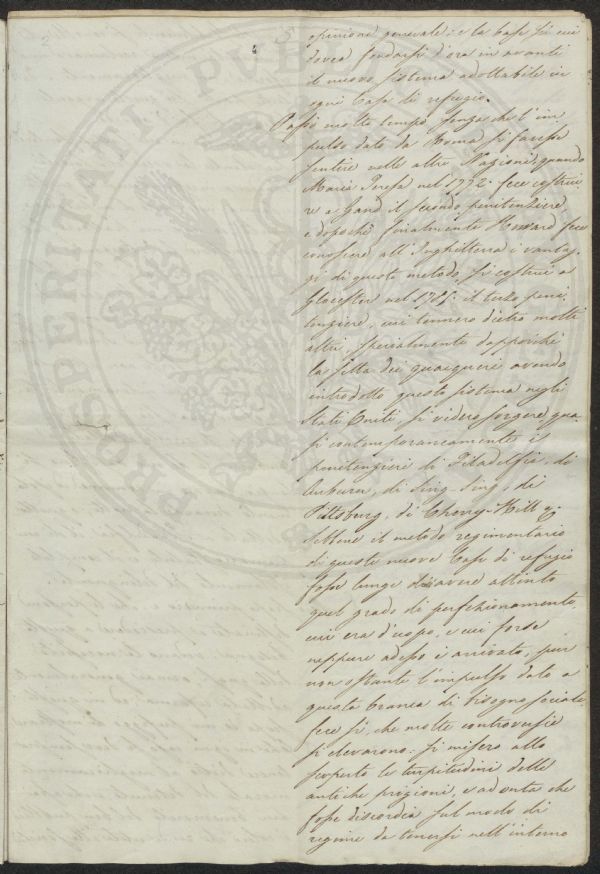 opinione generale: e la base su cui
dovea fondarsi d'ora in avanti
il nuovo sistema adottabile in
ogni Casa di refugio.
Passò molto tempo senza che l'im
pulso dato da Roma si facesse
sentire nelle altre Nazioni, quando
Maria Teresa nel 1772. fece costrui
re a Gand il secondo penitenziere
e dopochè finalmente Howard fece
conoscere all'Inghilterra i vantag-
gi di questo metodo si costruì a
Glocester nel 1785. il terzo peni
tenziere, cui tennero dietro molti
altri, specialmente dapporichè
la setta dei quacqueri avendo
introdotto questo sistema negli
Stati Uniti, si videro sorgere qua
si contemporaneamente i
penitenzieri di Filadelfia, di
Auburn, di Sing-Sing, di
Pittsburg, di Cherry-Hill
Sebbene il metodo regimentario
di queste nuove Case di refugio
fosse lungi d'avere attinto
quel grado di perfezionamento
cui era d'uopo, e cui forse
neppure adesso è arrivato, pur
non ostante l'impulso dato a
questa branca di bisogno sociale
fece sì, che molte controversie
si elevarono: si misero allo
scoperto le turpitudini delle
antiche prigioni, e ad onta che
fosse discordia sul modo di
regime da tenersi nell'interno
2
PROSPERITATI